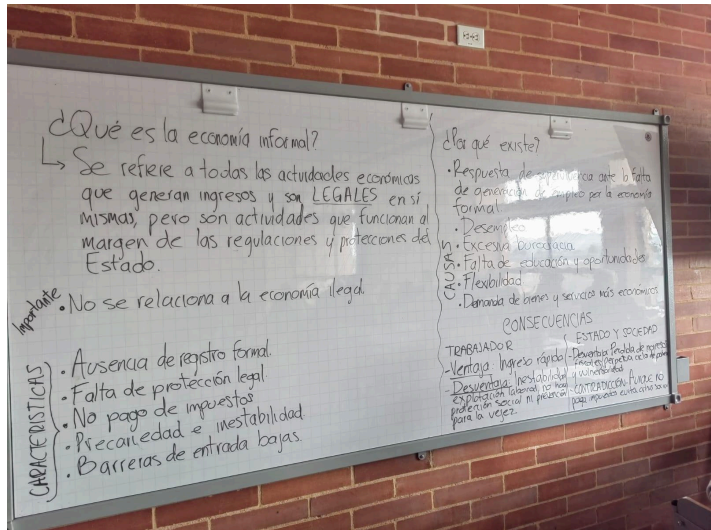 ¿Qué es la economía informal?
Se refiere a todas las actividades económicas
que generan ingresos y son LEGALES en sí
mismas, pero son actividades que funcionan al
margen de las regulaciones y protecciones del
Estado.
Importante
• No se relaciona a la economía ilegal.
CARACTERISTICAS
• Ausencia de registro formal.
• Falta de protección legal.
• No pago de impuestos
• Precariedad e inestabilidad.
• Barreras de entrada bajas.
¿Por qué existe?
• Respuesta de supervivencia ante la falta
de generación de empleo por la economía
formal.
CAUSAS
• Desempleo
• Excesiva burocracia
• Falta de educación y oportunidades
• Flexibilidad
• Demanda de bienes y servicios más económicos
CONSECUENCIAS
TRABAJADOR
- Ventaja: Ingreso rápido
- Desventaja: Inestabilidad,
explotación laboral, no hay
protección social ni prevención
para la vejez.
ESTADO Y SOCIEDAD
- Desventaja: Pérdida de ingresos
fiscales, perpetua ciclo de pobreza
y vulnerabilidad
- CONTRADICCIÓN: Aunque no
paga impuestos evita